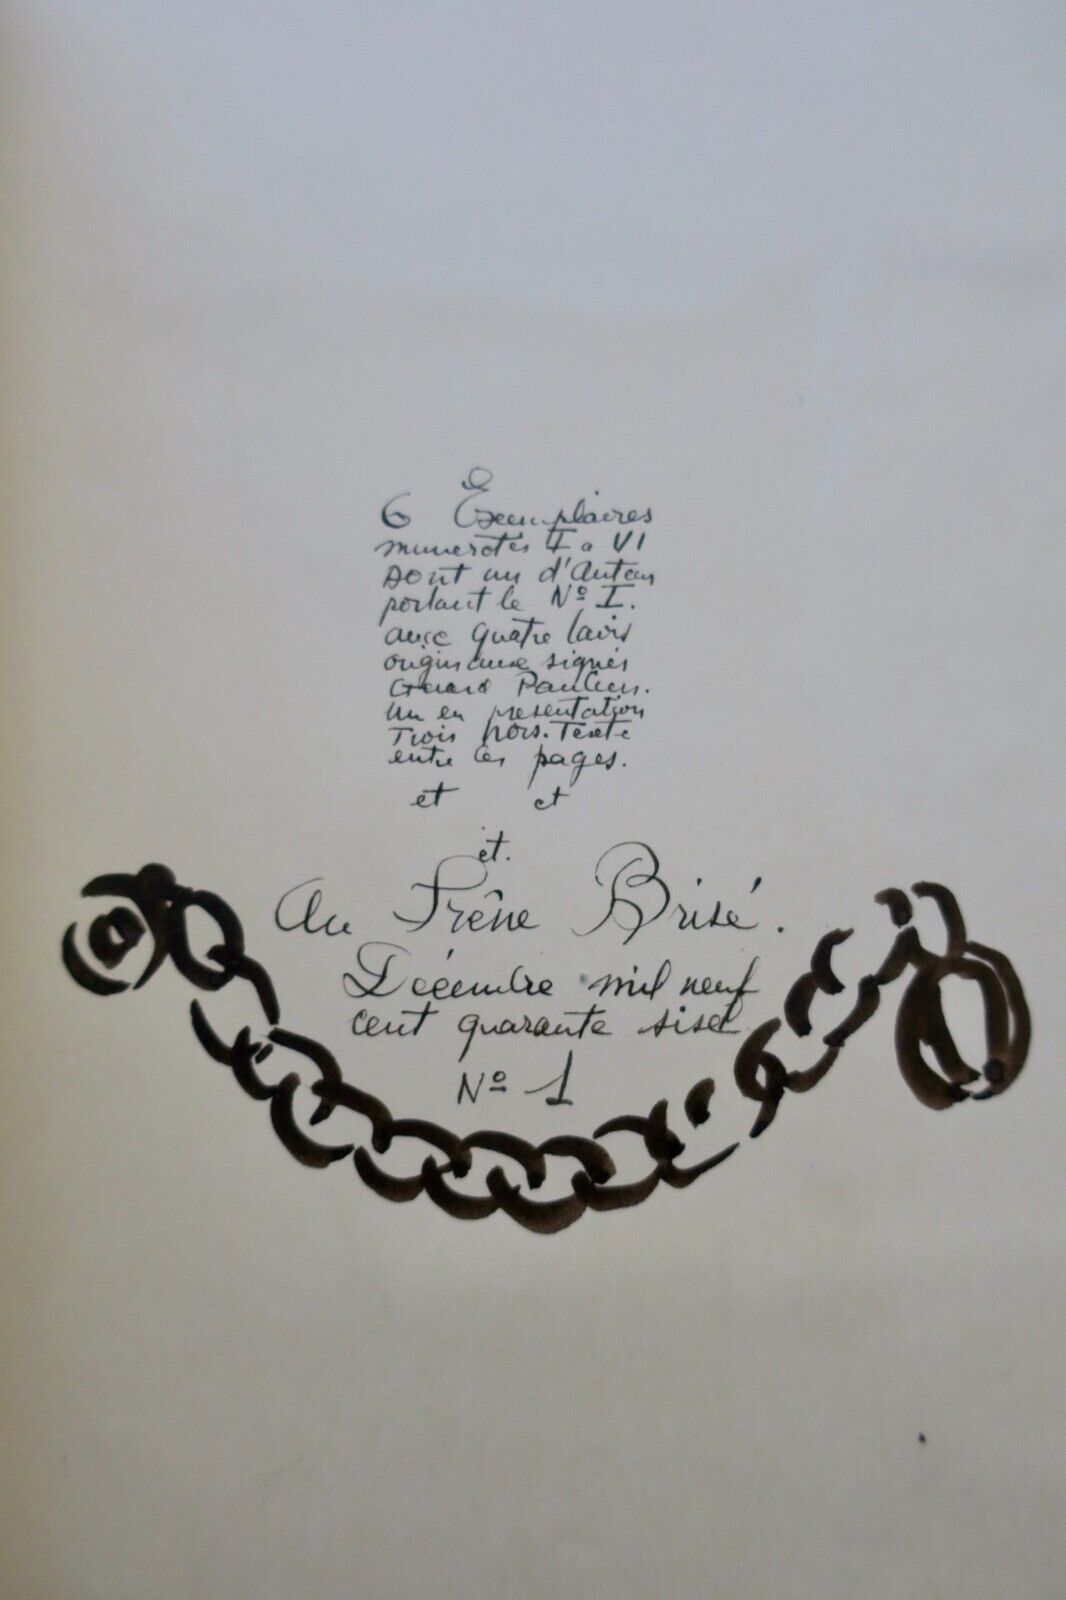 6 Exemplaires
numerotés I a VI
Dont un d'Auteur
portant le Nº I.
avec quatre lavis
originaux signés
Gerard
un en presentation
Trois hors-Texte
entre les pages.
et et
et.
Au Frêne Brisé.
Décembre mil neuf
cent quarante sise
Nº 1